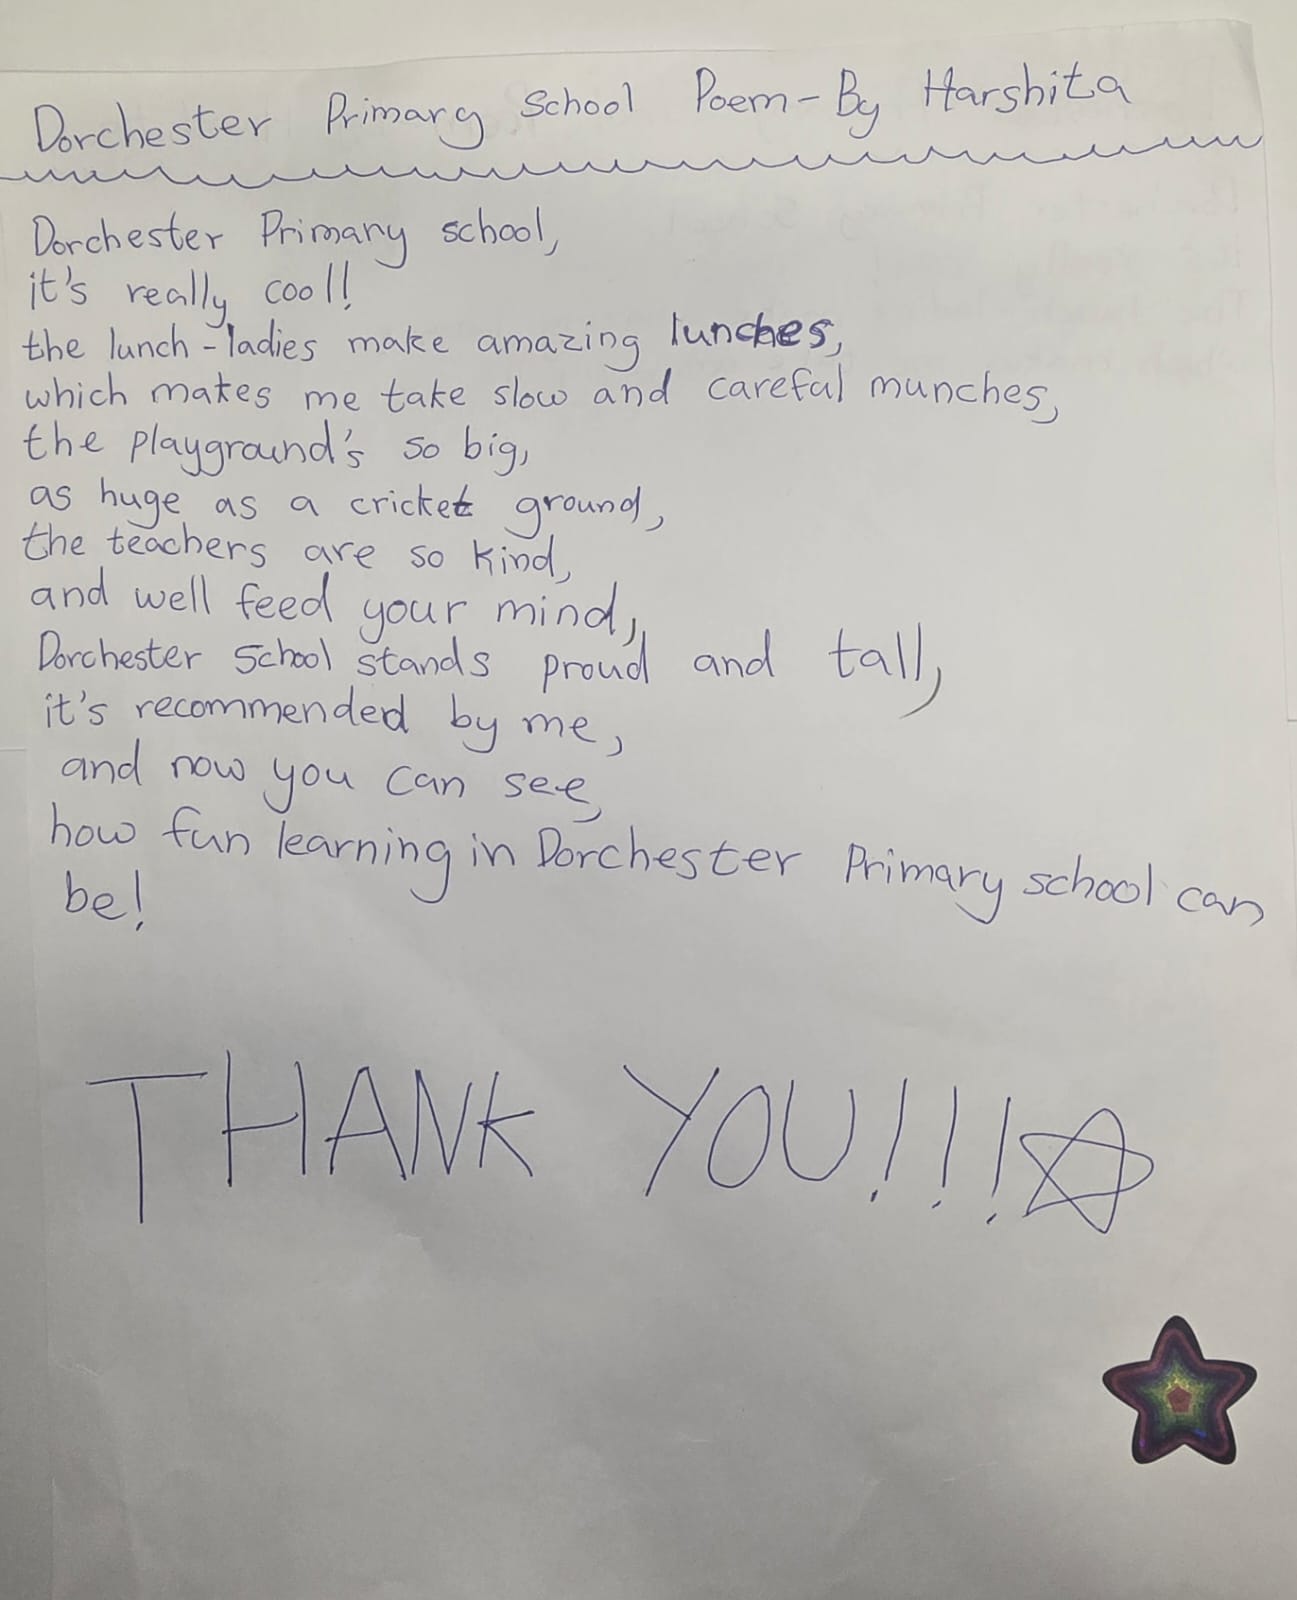 Dorchester Primary School Poem - By Harshita
Dorchester Primary school,
it's really cool!
the lunch-ladies make amazing lunches,
which makes me take slow and careful munches,
the playground's so big,
as huge as a cricket ground,
the teachers are so kind,
and well feed your mind,
Dorchester School stands proud and tall,
it's recommended by me,
and now you can see,
how fun learning in Dorchester Primary school can
be!
THANK YOU!!!